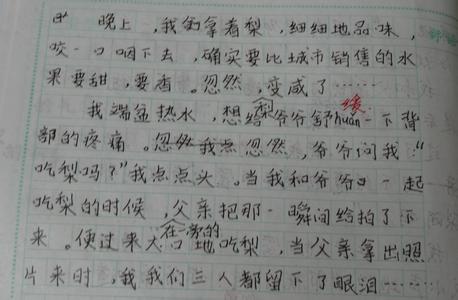 晚上，我们拿着梨，细细地品味，
咬一口咽下去，确实要比城市销售的水
果要甜，要香。忽然，变咸了……
缓
我端盆热水，想给梨爷爷舒huǎn一下背
部的疼痛。忽然我点忽然，爷爷问我：“
吃梨吗？”我点点头。当我和爷爷一起
吃梨的时候，父亲把那一瞬间给拍了下
在一旁的
来。便过来大口地吃梨，当父亲拿出照
片来时，我我们三人都留下了眼泪……